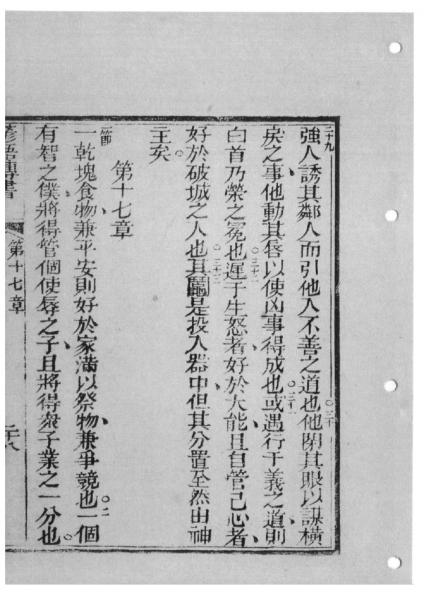 二十九強人誘其鄰人而引他入不善之道也○三十他閉其眼以謀橫
戾之事他動其唇以使凶事得成也○三十一或遇行于義之道則
白首乃榮之冕也○三十二遲于生怒者好於大能且自管己心者
好於破城之人也○三十三其鬮是投入器中但其分置全然由神
主矣○
第十七章
一節乾塊食物兼平安則好於家滿以祭物兼爭競也○二一個
有智之僕將得管個使辱之子且將得衆子業之一分也○
第十七章
二十八